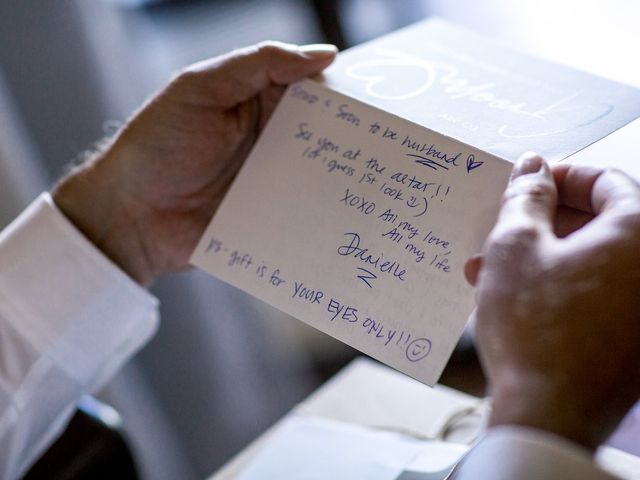 & Soon to be husband ♡
See you at the altar!!
(or i guess 1st look :))
XOXO All my love,
All my life
Danielle
ps- gift is for YOUR EYES ONLY!! ☺
Groom